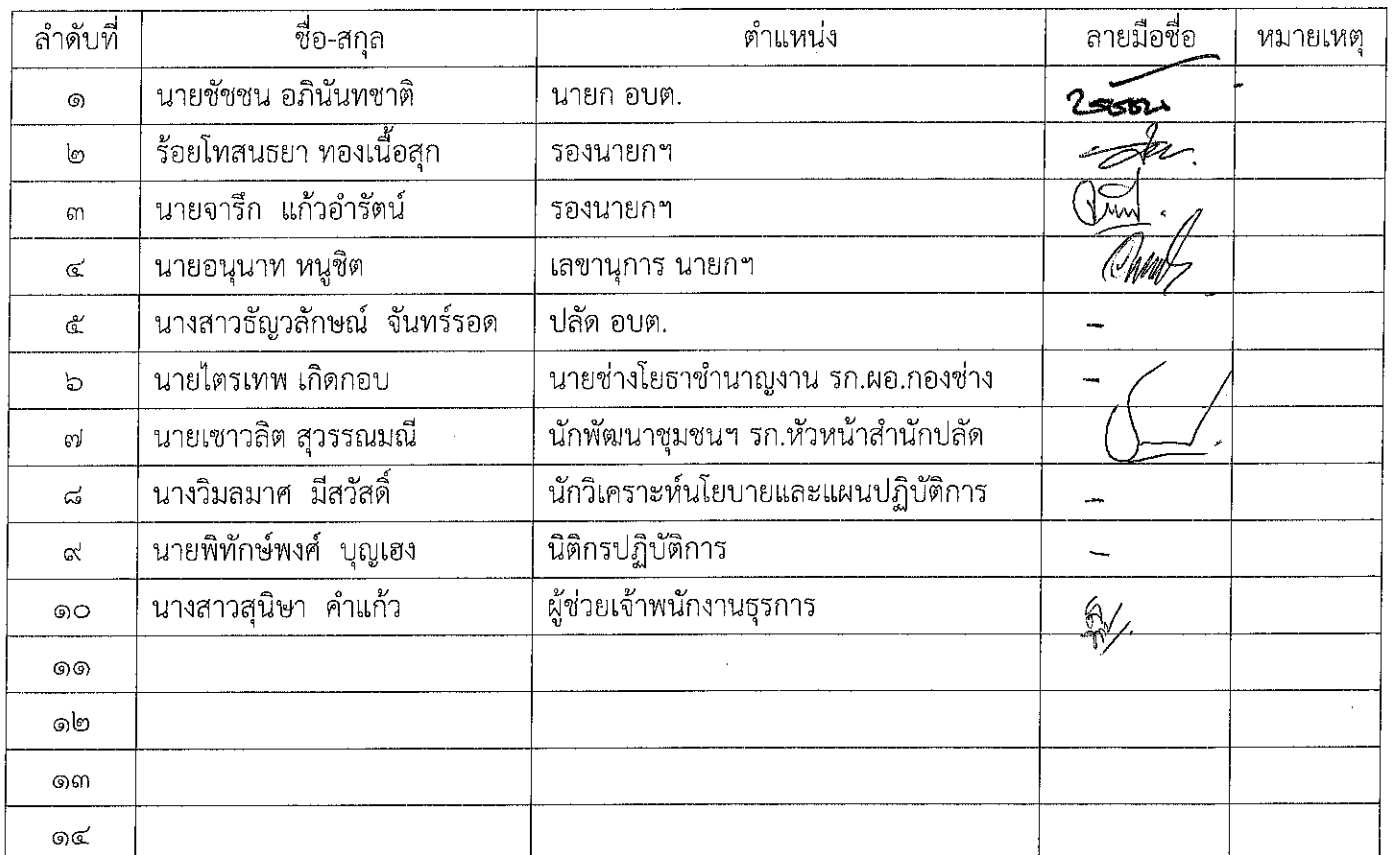 ลำดับที่ ชื่อ-สกุล ตำแหน่ง ลายมือชื่อ หมายเหตุ
๑ นายชัชชน อภินันทชาติ นายก อบต.
๒ ร้อยโทสนธยา ทองเนื้อสุก รองนายกฯ
๓ นายจารึก แก้วอำรัตน์ รองนายกฯ
๔ นายอนุนาท หนูชิต เลขานุการ นายกฯ
๕ นางสาวธัญวลักษณ์ จันทร์รอด ปลัด อบต. -
๖ นายไตรเทพ เกิดกอบ นายช่างโยธาชำนาญงาน รก.ผอ.กองช่าง -
๗ นายเชาวลิต สุวรรณมณี นักพัฒนาชุมชนฯ รก.หัวหน้าสำนักปลัด
๘ นางวิมลมาศ มีสวัสดิ์ นักวิเคราะห์นโยบายและแผนปฏิบัติการ -
๙ นายพิทักษ์พงศ์ บุญเฮง นิติกรปฏิบัติการ -
๑๐ นางสาวสุนิษา คำแก้ว ผู้ช่วยเจ้าพนักงานธุรการ
๑๑
๑๒
๑๓
๑๔